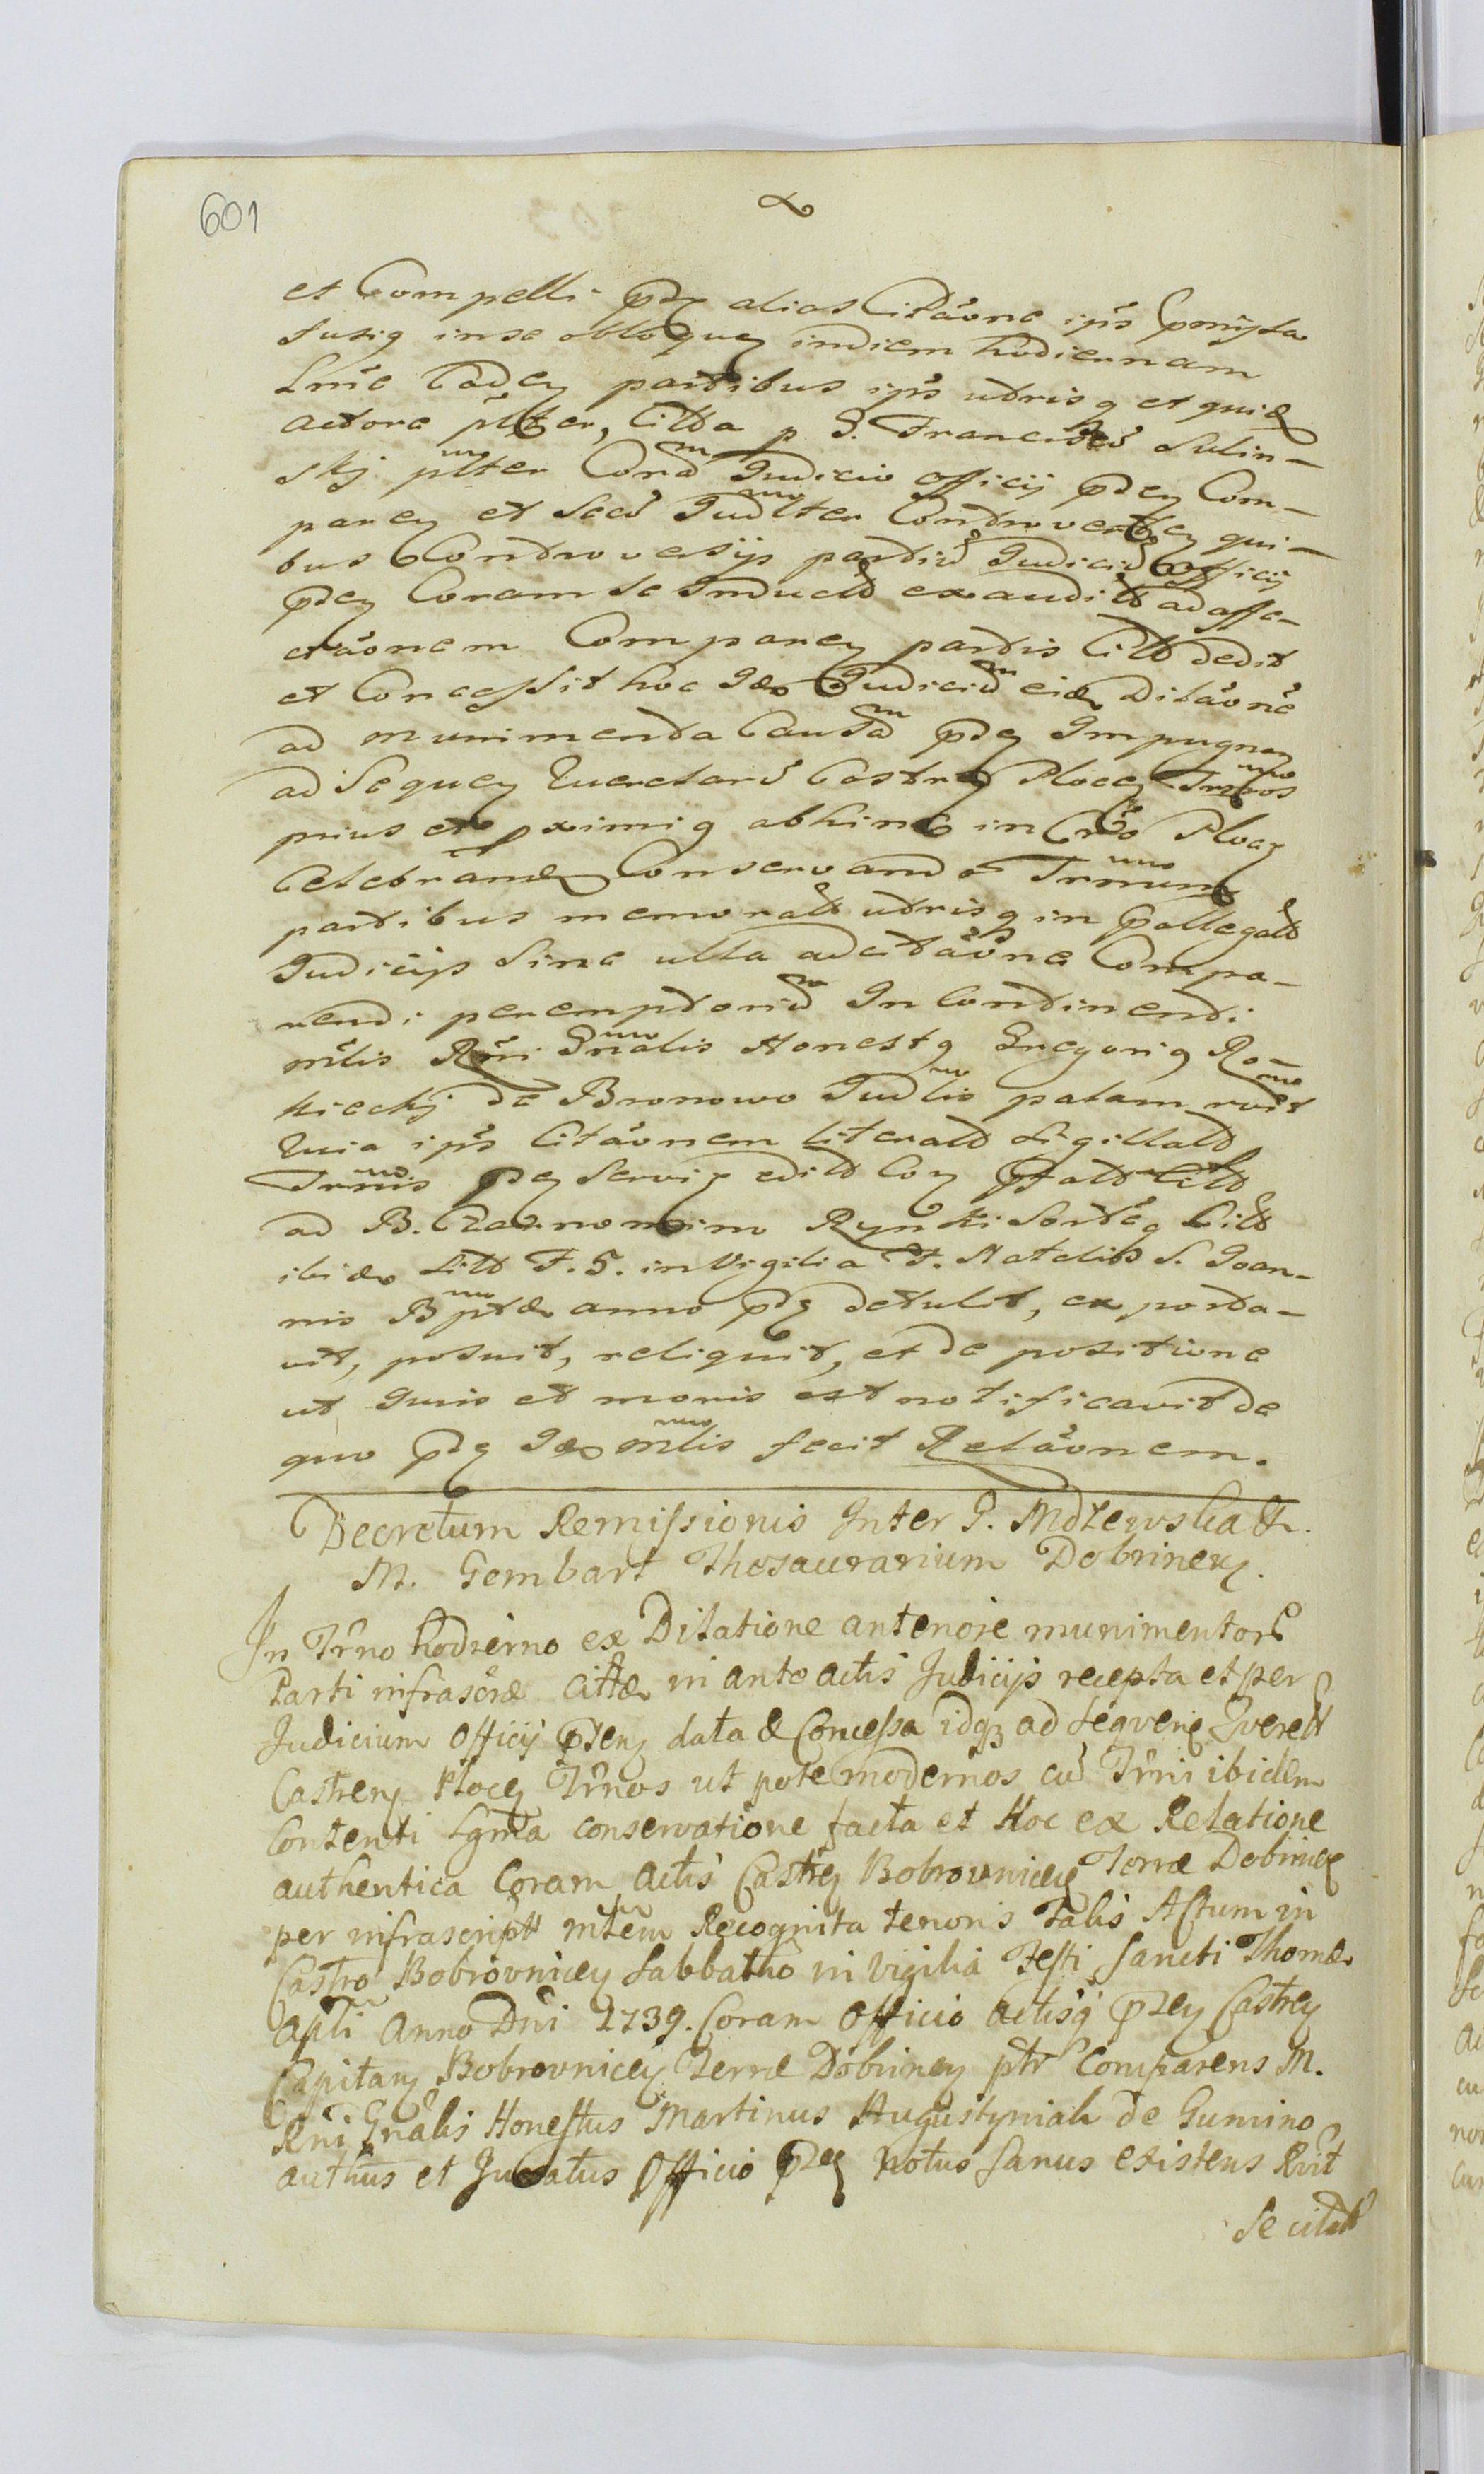 601
et Compelli pdꝫ alias Citãone ipõ Pomista
fusiq inse obloquꝫ indiem hodiernam
Lmẽ Cadeꝫ partibus ipõ utrisq et quidẽ
Actore pl̃ter, Citta p G. Franciscũ Sulin-
skj pl̃ter Corã Judicio Officij pdeꝫ Com-
pareꝫ et Secũ Judl̃ter Controverteꝫ qui-
bus Controversijs partiũ Judiciũ Officij
pdeꝫ Coram se Inductũ exaudit̃ ad affe-
ctãonem Compareꝫ partis Citt̃ dedit
et Concessit hoc Idẽ Judiciũ eidẽ Dilãonẽ
ad munimenta Causã pdꝫ Impugnaꝫ
ad Sequeꝫ Querelarũ Castreꝫ Ploceꝫ Trm̃os
prius et pximiq abhinc in Crõ Ploceꝫ
Celebrãndẽ Conservando Trm̃um
partibus memorat̃ utrisq in Pallegat̃
Judicijs Sine ulla adcitãone Compa-
rendi peremptoriũ In Continenti
ml̃is Rñi Gñalis Honestq Gregoriq Ro-
kickj de Bronowo Judl̃is palam rvit̃
Quia ipõ Citãonem Literat̃ Sigillat̃
Trm̃is pꝫ Serviꝫ edit̃ Coꝫ Pfat̃ Citt̃
ad B. Czarnomino Rynki Sortẽq Citt̃
ibidẽ Citt̃ F. 5. in Vigilia F. Natalis S. Joan-
nis Bptẽ anno pdꝫ detulit, exporta-
vit, posuit, reliquit, et de positione
ut Juris et moris est notificavit de
quo pdꝫ Idẽ ml̃is fecit Relãonem.
Decretum Remissionis Inter G. Mdzewska &.
M. Gembart Thesaurarium Dobrineꝫ.
In Tr̃no hodierno ex Dilatione anteriore munimentorũ
Parti infrascræ cittæ in ante actis Judicijs recepta et per
Judicium Officij Pdenꝫ data & Concessa idqꝫ ad seqvenꝫ Qverell̃
Castrenꝫ Ploceꝫ Tr̃nos ut pote modernos cũ Tr̃ni ibidem
Contenti Lgm̃a conservatione facta et Hoc ex Relatione
authentica Coram Actis Castreꝫ Bobrovniceꝫ Terræ Dobrineꝫ
per infrascript̃ ml̃em Recognita tenoris talis Actum in
Castro Bobrovniceꝫ Sabbatho in Vigilia Festi Sancti Thomæ
Apl̃i Anno Dñi 1739. Coram Officio Actisq pdeꝫ Castreꝫ
Capitanꝫ Bobrovniceꝫ Terræ Dobrineꝫ ptr̃ Comparens M.
Rñi Gñalis Honestus Martinus Augustyniak de Gumino
authũs et Juratus Officio Pdeꝫ Notus Sanus existens Rvit̃
Se citat̃